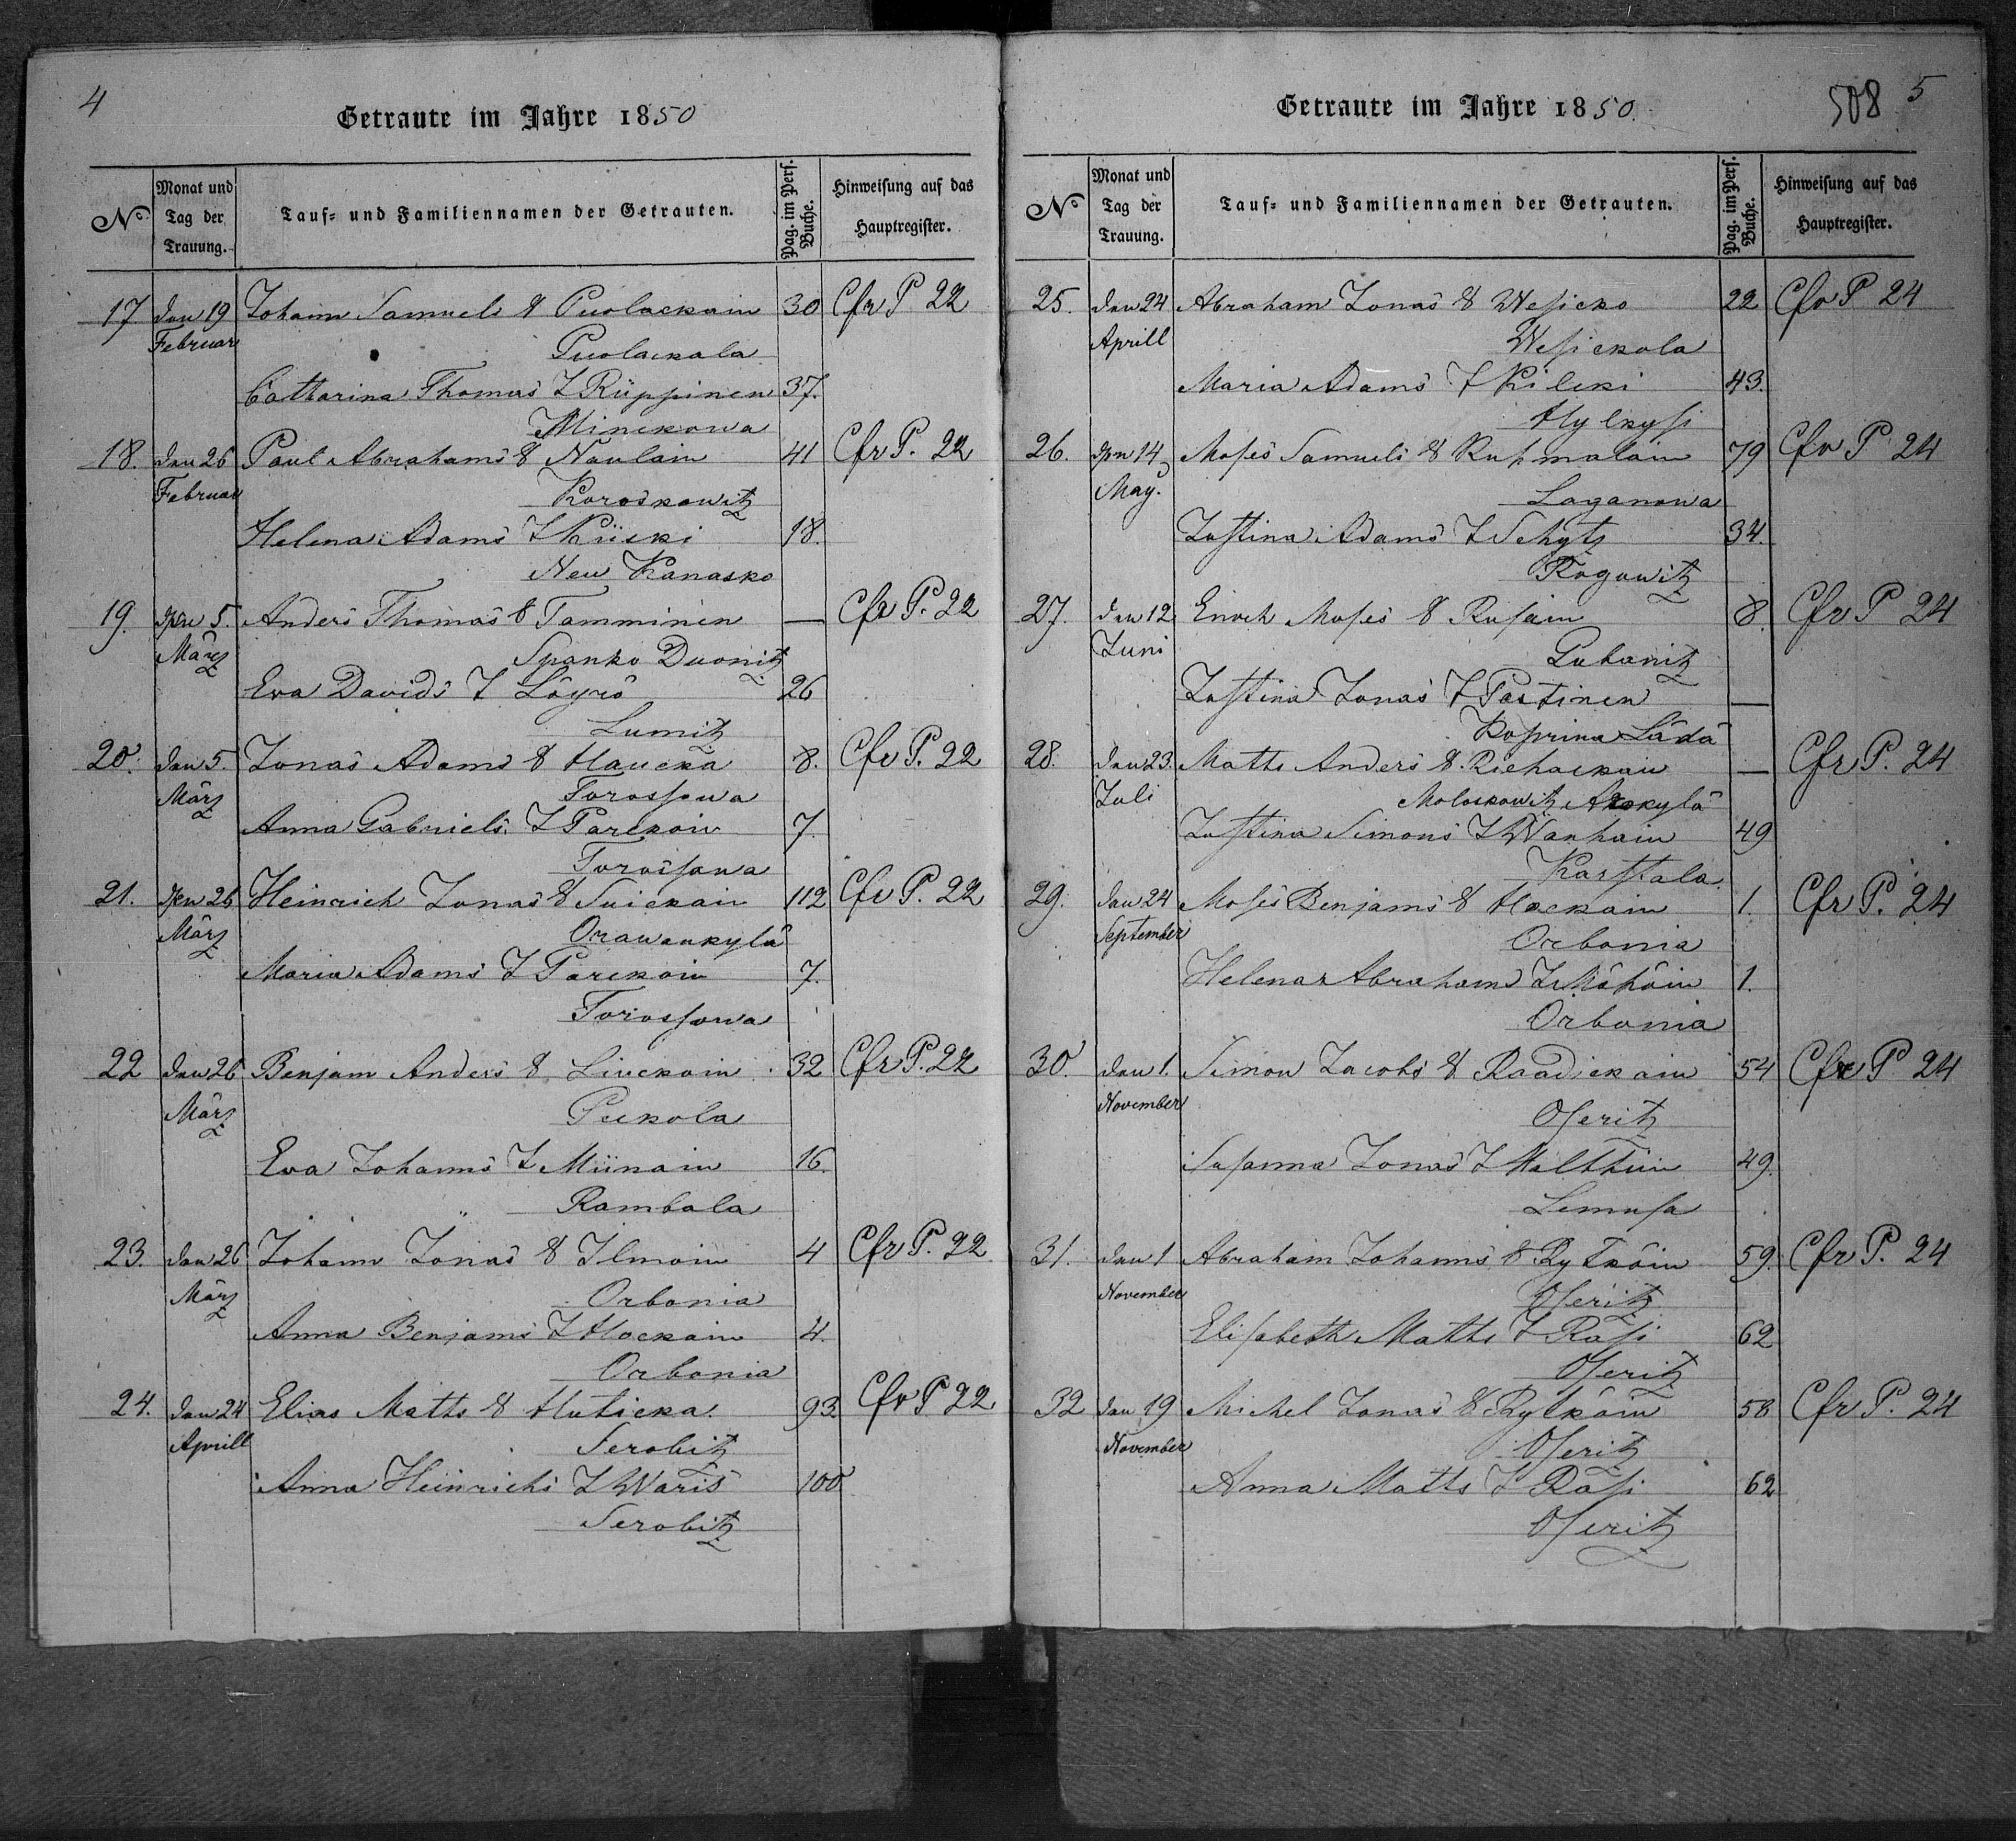 4
Getraute im Jahre 1850
No.
Monat und Tag der Trauung.
Tauf- und Familiennamen der Getrauten.
Pag. im Pers. Buche.
Hinweisung auf das Hauptregister.
17 den 19 Johann Samuels S Puolackain 30 Cfr P 22
Februar Puolackala
Catharina Thomas T Rüppinen 37.
Minckowa
18. den 26 Paul Abrahams S Naulain 41 Cfr P. 22
Februar Koroskowitz
Helena Adams T Kiiski 18.
New Kanasko
19. den 5. Anders Thomas S Tamminen — Cfr P. 22
März Spanko Duonitz
Eva Davids T Lögrö 26
Lumitz
20. den 5. Jonas Adams S Haucka 8. Cfr P. 22
März Torossowa
Anna Gabriels T Parckain 7.
Torossowa
21. den 26 Heinrich Jonas S Suickain 112 Cfr P. 22
März Orawankylä
Maria Adams T Parckain 7.
Torossowa
22 den 26 Benjam Anders S Liuckain 32 Cfr P. 22
März Puckola
Eva Johanns T Miinain 16.
Rambala
23. den 26 Johann Jonas S Ilmain 4 Cfr P. 22
März Orbonia
Anna Benjams T Hackain 4.
Orbonia
24. den 24 Elias Matts S Huticka. 93 Cfr P 22
Aprill Serobitz
Anna Heinrichs T Waris 100
Serobitz
508 5
Getraute im Jahre 1850.
No
Monat und Tag der Trauung.
Tauf- und Familiennamen der Getrauten.
Pag. im Pers. Buche.
Hinweisung auf das Hauptregister.
25. den 24 Abraham Jonas S Wesicko 22 Cfr P 24
Aprill Wesickola
Maria Adams T Kilcki 43.
Hylkysi
26. den 14 Moses Samuels S Ruhmalain 79 Cfr P 24
May. Laganowa
Justina Adams T Schytz 34.
Rogowitz
27. den 12 Enoch Moses S Rusain 8. Cfr P 24
Juni Gubanitz
Justina Jonas T Partinen —
Koprina Lädä
28. den 23. Matts Anders S. Riehackain — Cfr P. 24
Juli Moloskowitz Arokylä
Justina Simons T Wanhain 49
Karstala.
29. den 24 Moses Benjams S Hackain 1. Cfr P. 24
September Orbonia
Helena Abrahams T Mähöin 1.
Orbonia
30. den 1. Simon Jacobs S Raadickain 54 Cfr P 24
November Oseritz
Susanna Jonas T Malthiin 49.
Lemusa
31. den 1 Abraham Johanns S Rytköin 59. Cfr P. 24
November Oseritz
Elisabeth Matts T Räsi 62
Oseritz
32 den 19 Michel Jonas S Rytköin 58 Cfr P. 24
November Oseritz
Anna Matts T Räsi 62
Oseritz